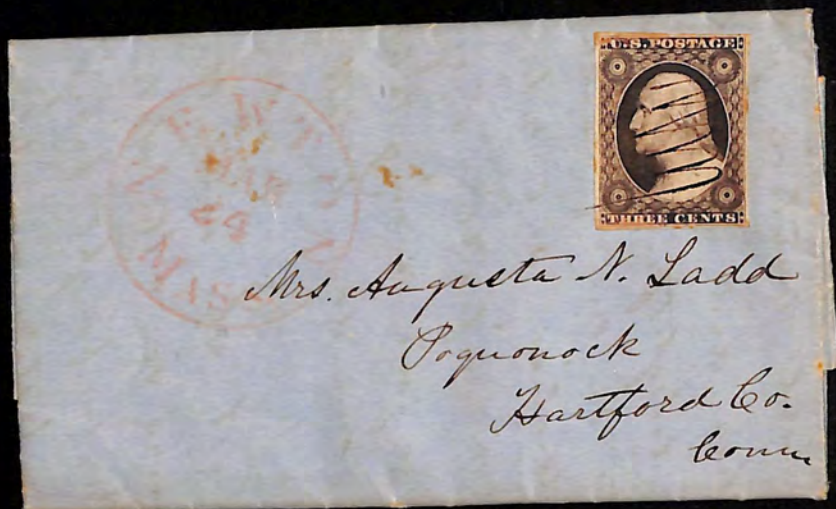 U.S. POSTAGE
THREE CENTS
NEWTON
MAR
24
MASS
Mrs. Augusta N. Ladd
Poquonock
Hartford Co.
Conn